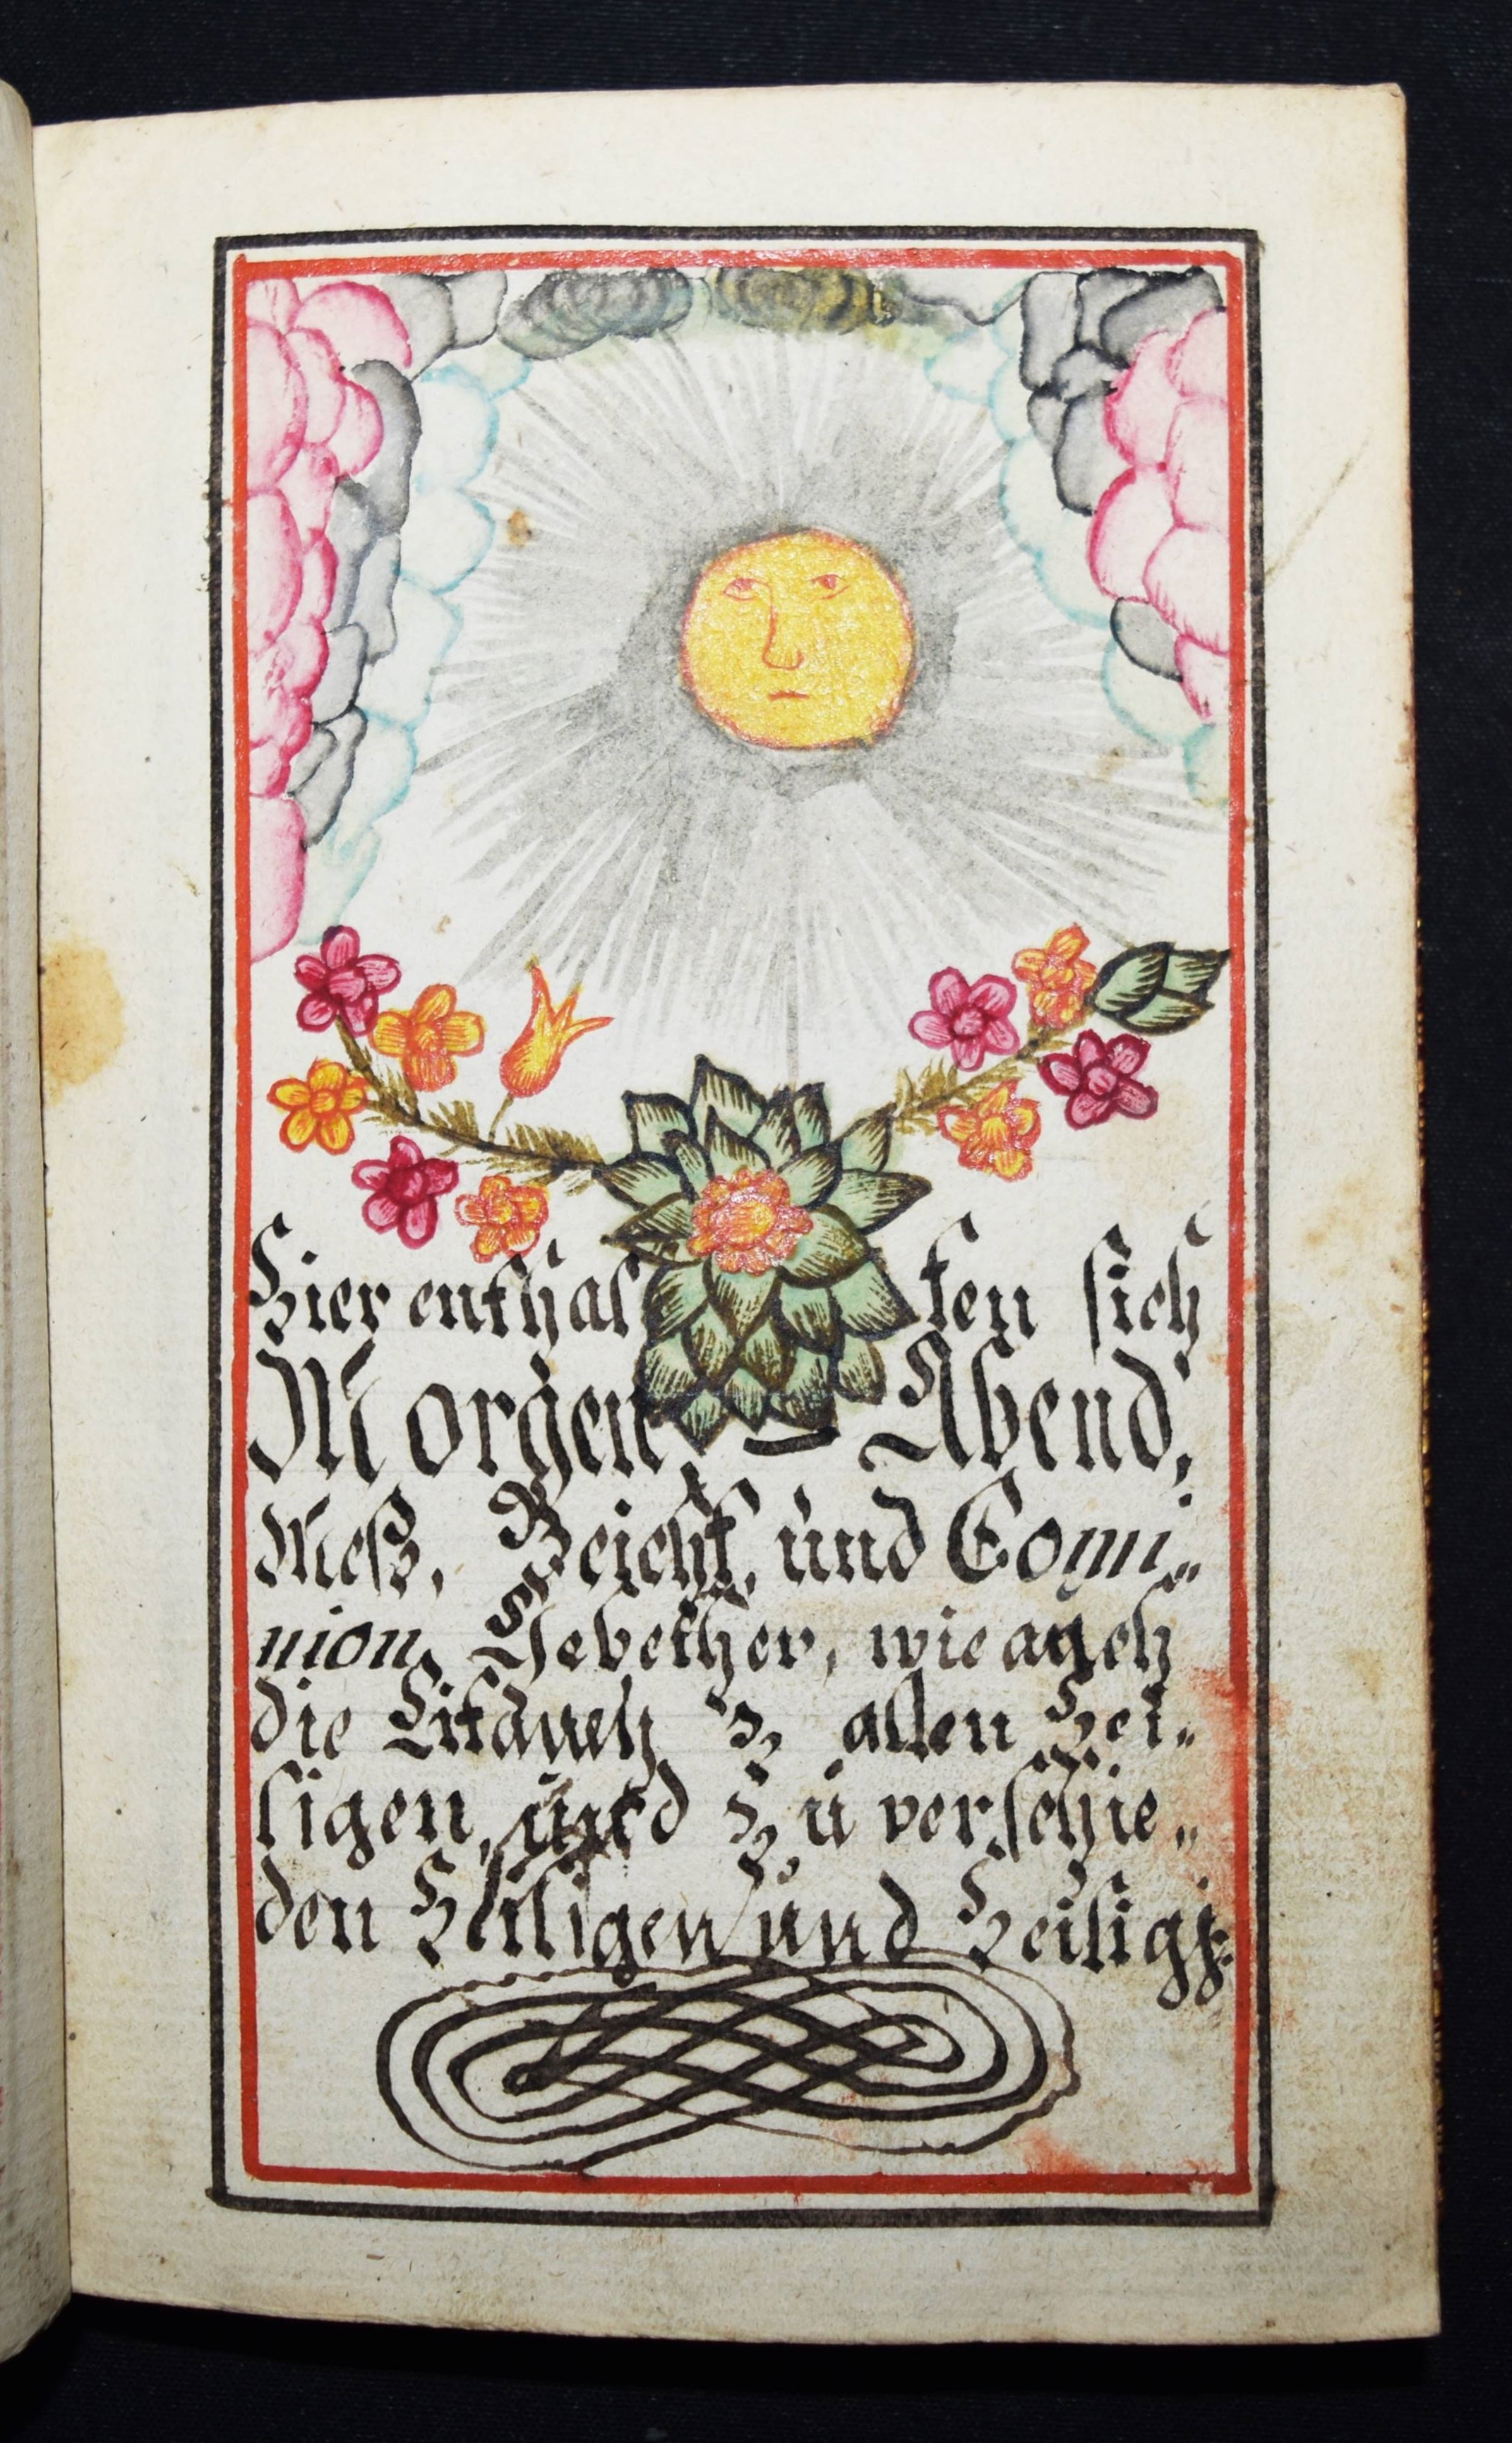 Hier enthal ten sich
Morgen, - Abend,
Meß, Beicht, und Com̄i„
nion, Gebether, wie auch
die Litaneÿ z. allen Hei„
ligen, und zu verschie„
den Heiligen und Heiligȝ: